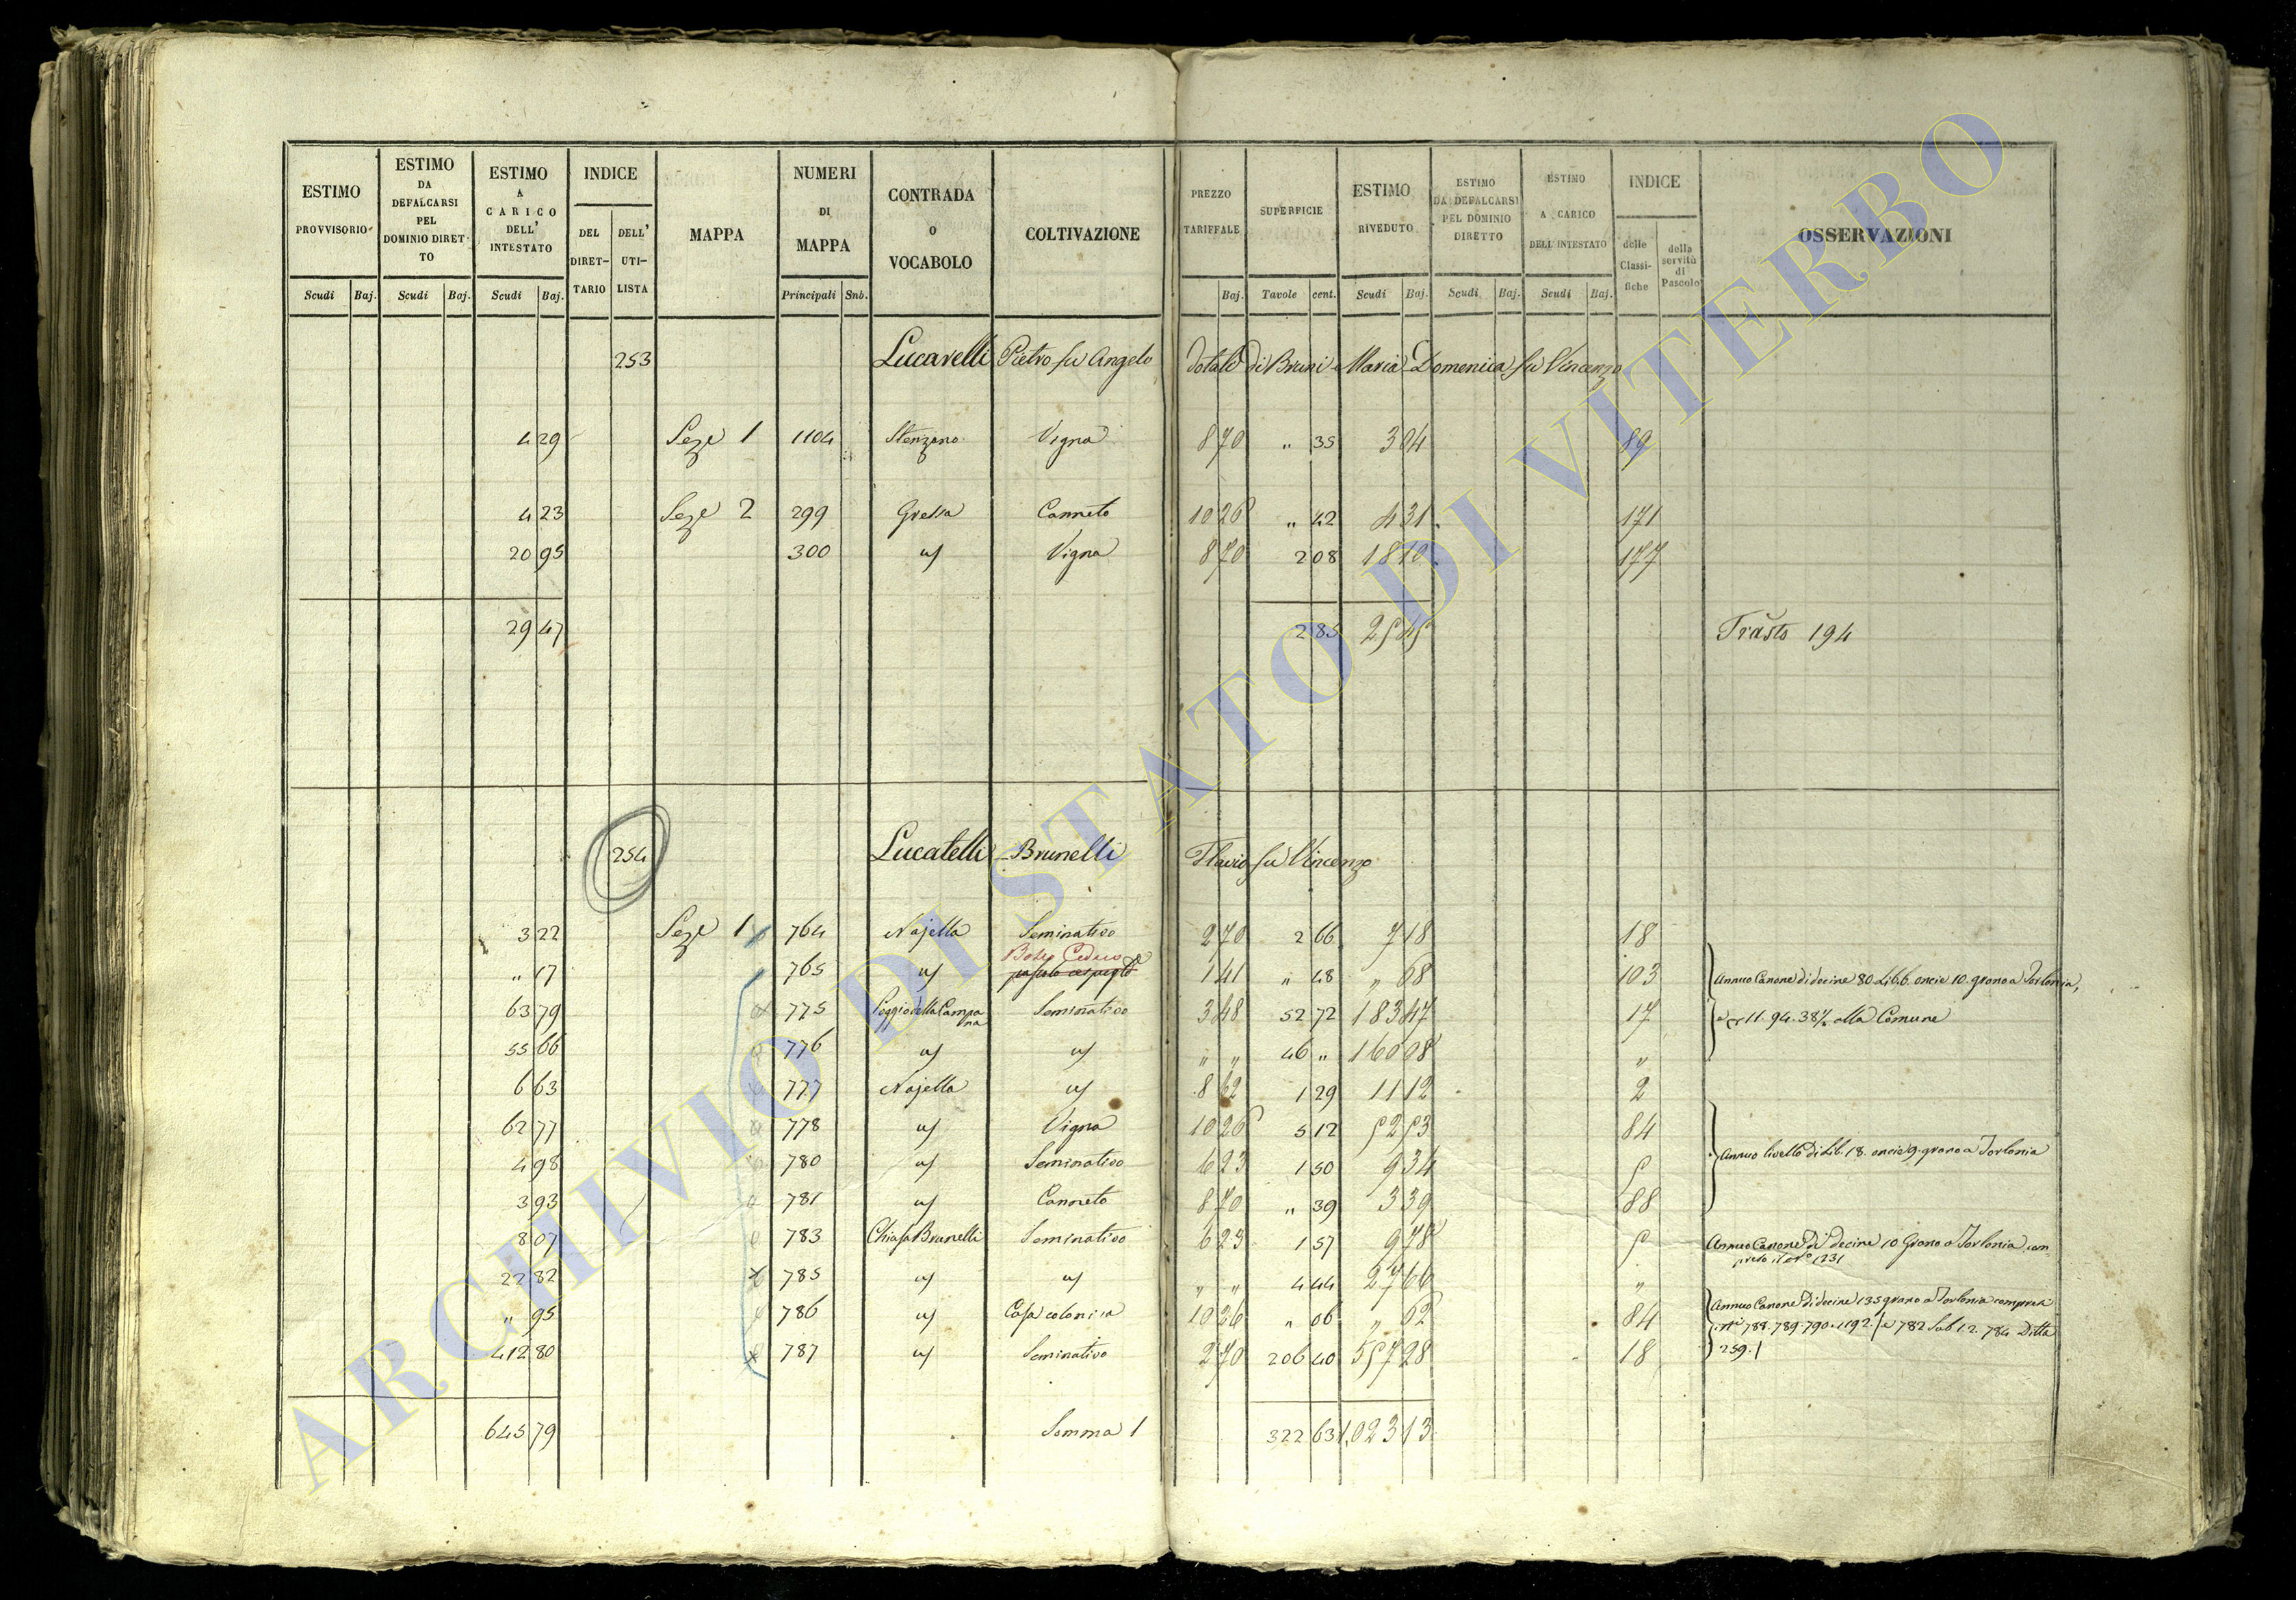 ESTIMO PROVVISORIO
ESTIMO DA DEFALCARSI PEL DOMINIO DIRET-TO
ESTIMO A CARICO DELL' INTESTATO
INDICE
DEL DIRET-TARIO
DELL' UTI-LISTA
MAPPA
NUMERI DI MAPPA
CONTRADA O VOCABOLO
COLTIVAZIONE
PREZZO TARIFFALE
SUPERFICIE
ESTIMO RIVEDUTO
ESTIMO DA DEFALCARSI PEL DOMINIO DIRETTO
ESTIMO A CARICO DELL'INTESTATO
INDICE
delle Classi-fiche
della servitù di Pascolo
OSSERVAZIONI
Scudi Baj. Scudi Baj. Scudi Baj. Principali Snb. Baj. Tavole cent. Scudi Baj. Scudi Baj. Scudi Baj.
253 Lucarelli Pietro fu Angelo dotale di Bruni Maria Domenica fu Vincenzo
4 29 Seze 1 1104 Stenzano Vigna 8 70 " 35 3 04 89
4 23 Seze 2 299 Canneto 10 26 " 42 4 31 171
20 95 300 Vigna 8 70 2 08 18 10 177
29 47 2 85 25 45 194
254 Lucatelli Brunelli Flavio fu Vincenzo
3 22 Seze 1 764 Najella Seminativo 2 70 2 66 7 18 18
Bosco Ceduo
" 17 765 1 41 " 48 " 68 103 Annuo Canone di decine 80 Libb. oncie 10. grano a Torlonia,
63 79 775 Poggio della Campana Seminativo 3 48 52 72 183 47 17 11. 94. 38 alla Comune
55 66 776 " " 46 " 160 08 "
6 63 777 Najella 8 62 1 29 11 12 2
62 77 778 Vigna 10 26 5 12 52 53 84
4 98 780 Seminativo 6 23 1 50 9 34 5 Annuo livello di Lib. 18. oncie 9. grano a Torlonia
3 93 781 Canneto 8 70 " 39 3 39 88
8 07 783 Chiusa Brunelli Seminativo 6 23 1 57 9 78 5 Annuo Canone di decine 10 Grano a Torlonia com-
preso il N° 1231
22 82 785 " " 4 44 27 66 "
" 95 786 Casa colonica 10 26 " 06 " 62 84 Annuo Canone di decine 135 grano a Torlonia compresi
i Ni 788. 789. 790. 1192. e 782 Sub 1. 2. 784 Ditta
412 80 787 Seminativo 2 70 206 40 557 28 18 259.
645 79 Somma 1 322 63 1,023 13
ARCHIVIO DI STATO DI VITERBO